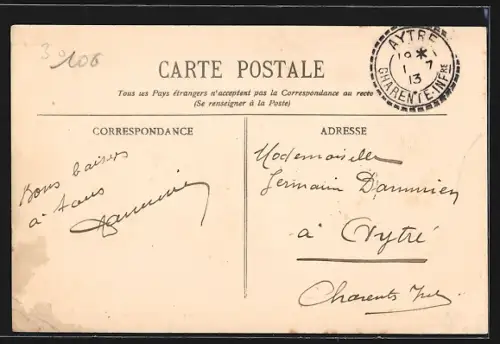 3
106
AYTRÉ
18 *
1 - 7
13
CHARENTE-INFRE
CARTE POSTALE
Tous les Pays étrangers n'acceptent pas la Correspondance au recto
(Se renseigner à la Poste)
CORRESPONDANCE
Bons baisers
à tous
ADRESSE
Mademoiselle
Germain
à Aytré
Charente Infre